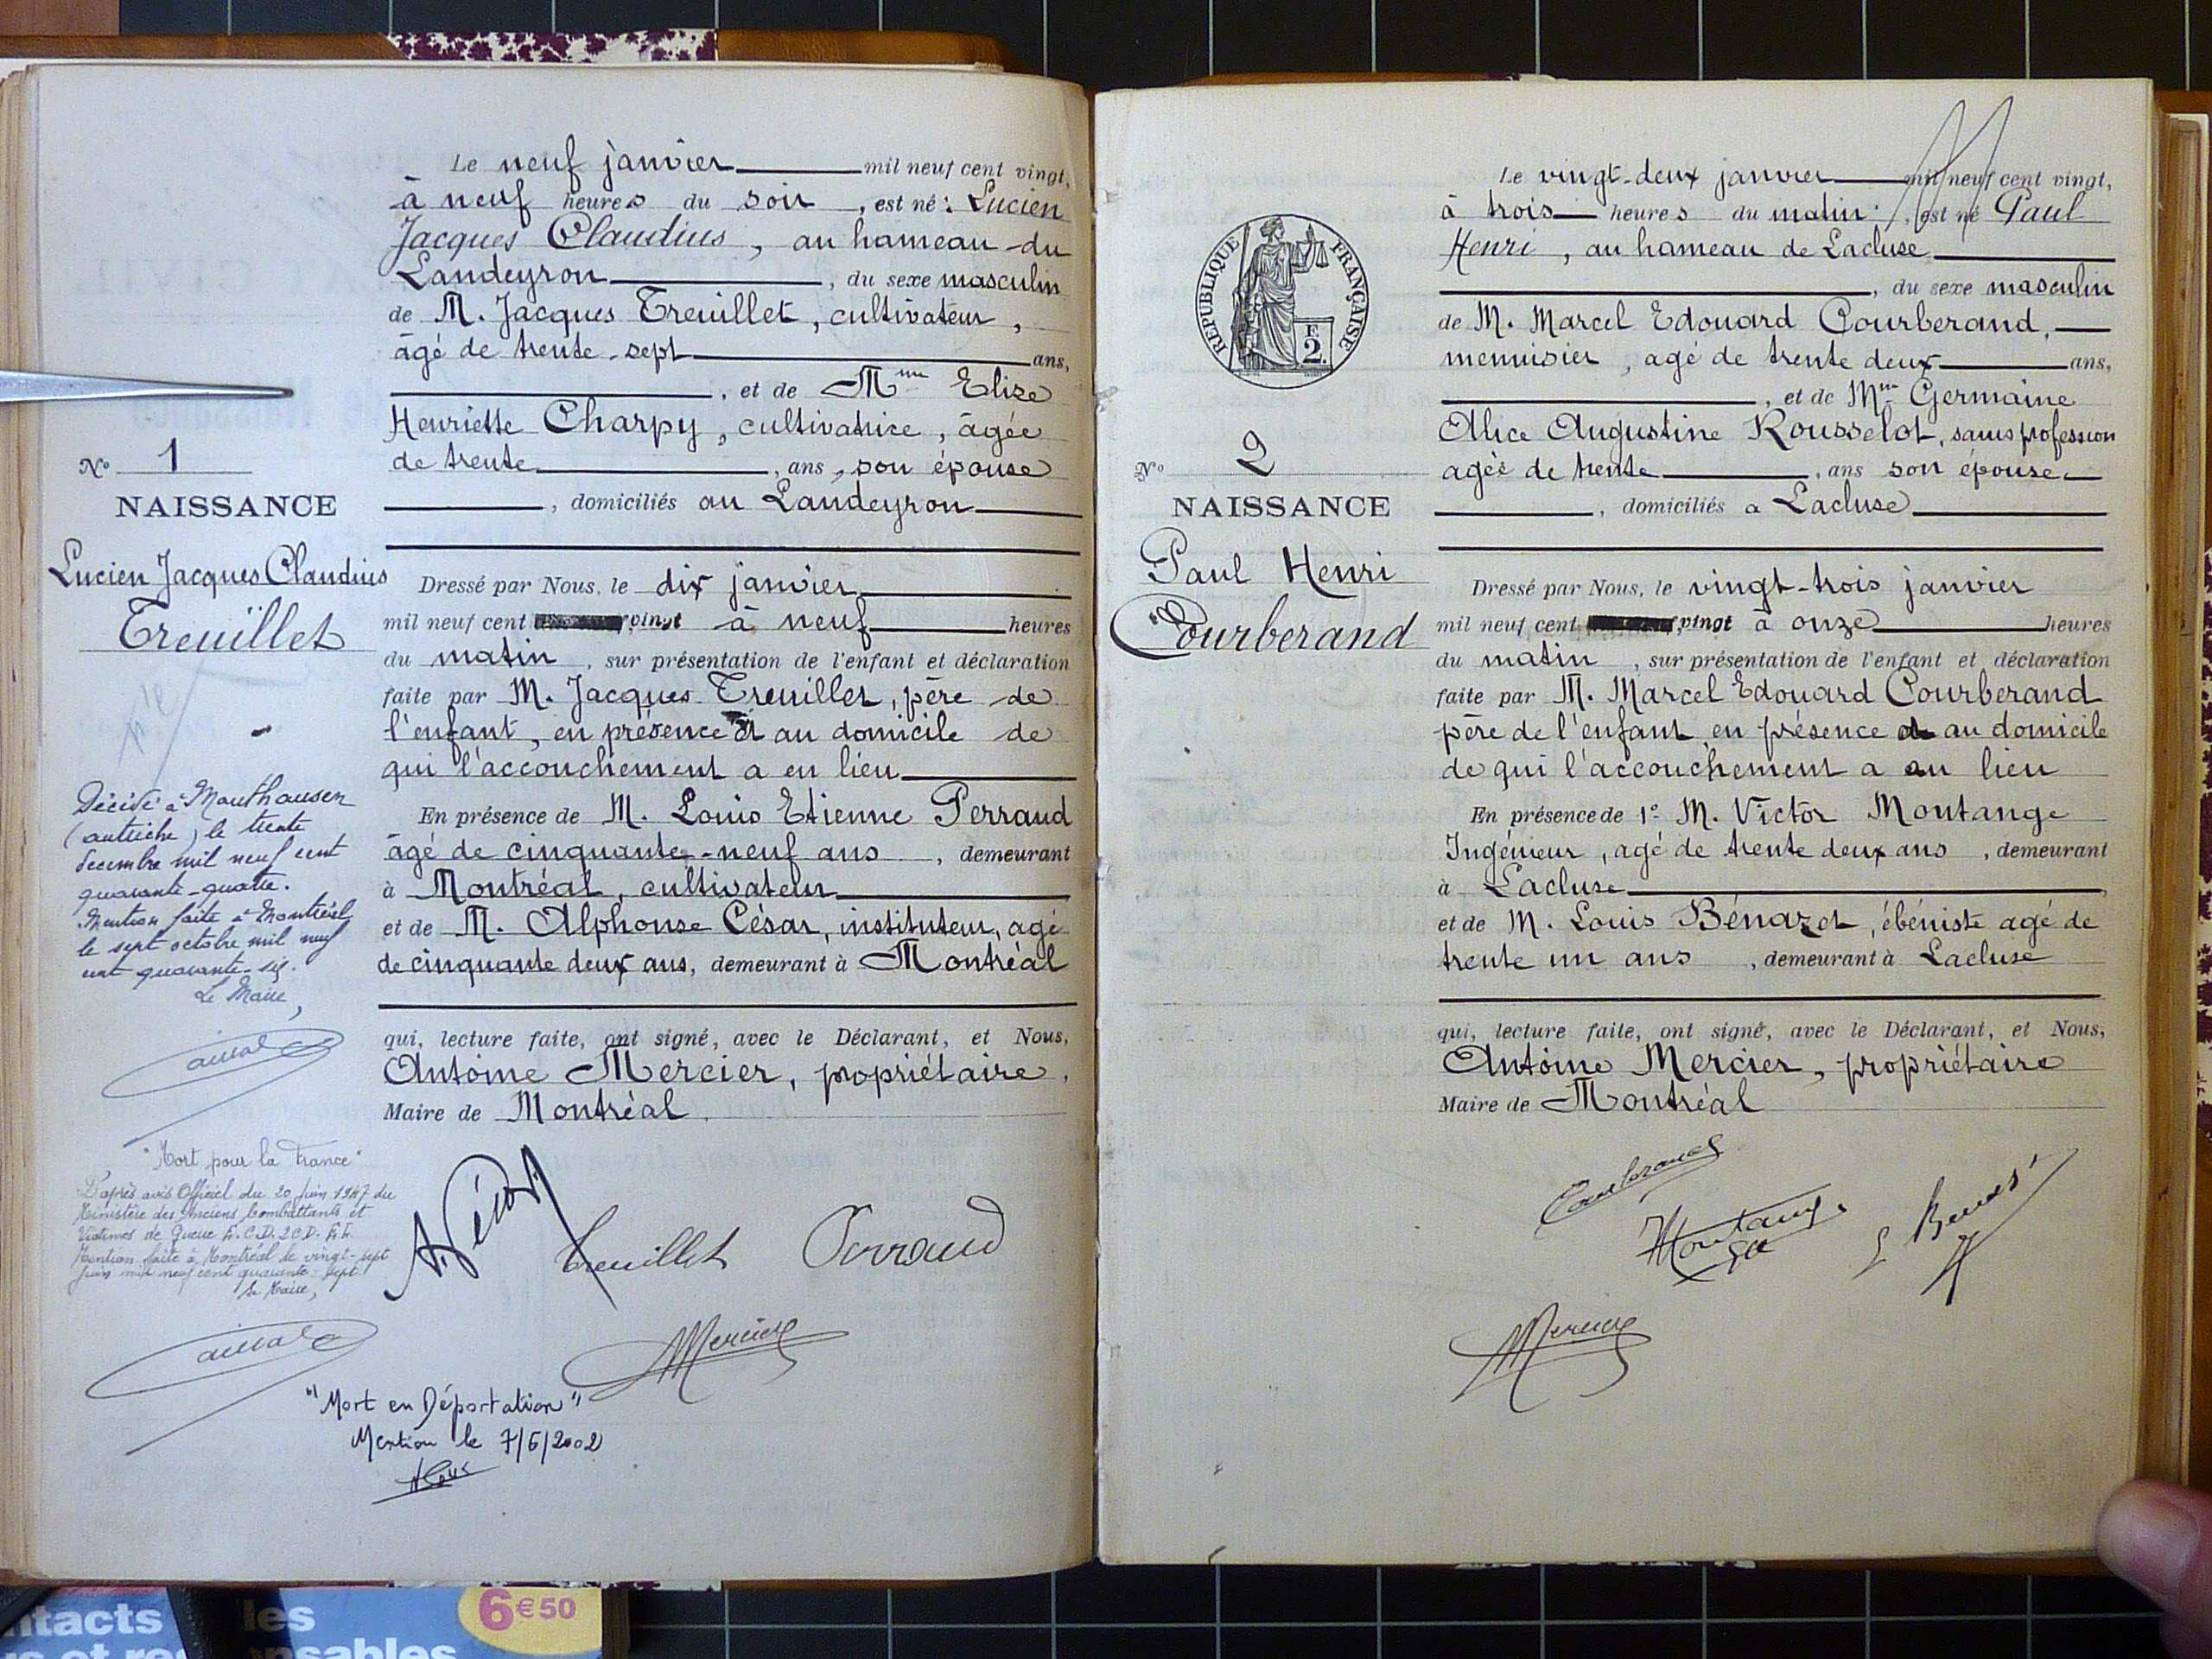 Le neuf janvier mil neuf cent vingt,
à neuf heures du soir, est né : Lucien
Jacques Claudius, au hameau du
Landeyron, du sexe masculin
de M. Jacques Treuillet, cultivateur,
âgé de trente-sept ans,
, et de Mme Elise
Henriette Charpy, cultivatrice, âgée
de trente, ans, son épouse
, domiciliés au Landeyron
No 1
NAISSANCE
Lucien Jacques Claudius
Treuillet
Dressé par Nous, le dix janvier
mil neuf cent vingt à neuf heures
du matin, sur présentation de l'enfant et déclaration
faite par M. Jacques Treuillet, père de
l'enfant, en présence et au domicile de
qui l'accouchement a eu lieu
En présence de M. Louis Etienne Perraud
âgé de cinquante-neuf ans, demeurant
à Montréal, cultivateur
et de M. Alphonse César, instituteur, agé
de cinquante deux ans, demeurant à Montréal
qui, lecture faite, ont signé, avec le Déclarant, et Nous,
Antoine Mercier, propriétaire,
Maire de Montréal.
Décédé à Mauthausen
(autriche) le trente
décembre mil neuf cent
quarante-quatre.
Mention faite à Montréal
le sept octobre mil neuf
cent quarante-six.
Le Maire,
"Mort pour la France"
D'après avis Officiel du 20 juin 1947 du
Ministère des Anciens Combattants et
Victimes de Guerre
Mention faite à Montréal le vingt-sept
juin mil neuf cent quarante-sept.
Le Maire,
Treuillet Perraud
Mercier
"Mort en Déportation"
Mention le 7/6/2002
Le vingt-deux janvier mil neuf cent vingt,
à trois heures du matin, est né Paul
Henri, au hameau de Lacluse
, du sexe masculin
de M. Marcel Edouard Courberand,
menuisier, agé de trente deux ans,
, et de Mme Germaine
Alice Augustine Rousselot, sans profession
agée de trente, ans son épouse
, domiciliés à Lacluse
RÉPUBLIQUE FRANÇAISE
F.
2.
No 2
NAISSANCE
Paul Henri
Courberand
Dressé par Nous, le vingt-trois janvier
mil neuf cent vingt à onze heures
du matin, sur présentation de l'enfant et déclaration
faite par M. Marcel Edouard Courberand
père de l'enfant en présence et au domicile
de qui l'accouchement a eu lieu
En présence de 1° M. Victor Montange
Ingénieur, agé de trente deux ans, demeurant
à Lacluse
et de M. Louis Bénazet, ébéniste agé de
trente un ans, demeurant à Lacluse
qui, lecture faite, ont signé, avec le Déclarant, et Nous,
Antoine Mercier, propriétaire
Maire de Montréal
Courberand
Montange
Mercier
ntacts
les
6€50